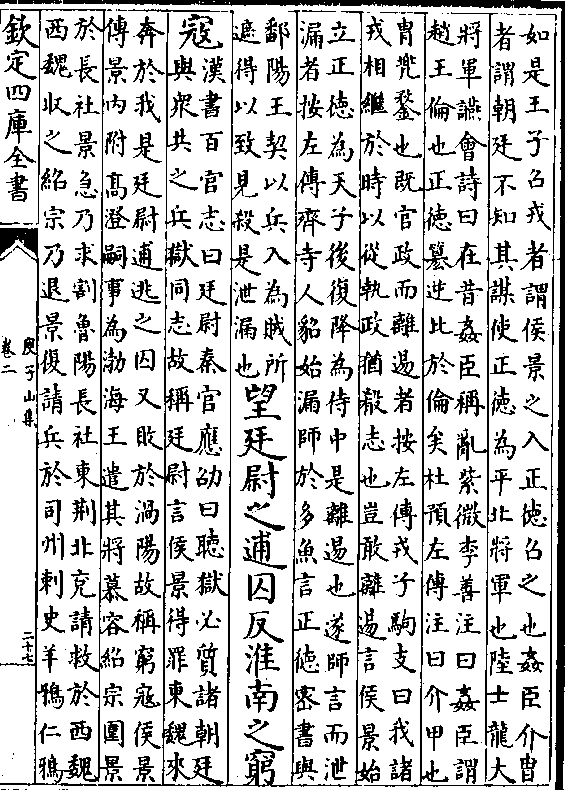 如是王子召戎者謂侯景之入正德召之也姦臣介胄
者謂朝廷不知其謀使正德為平北將軍也陸士龍大
將軍讌會詩曰在昔姦臣稱亂紫微李善注曰姦臣謂
趙王倫也正德簒逆比於倫矣杜預左傳注曰介甲也
胄兜鍪也既官政而離逷者按左傳戎子駒支曰我諸
戎相繼於時以從執政猶殽志也豈敢離逷言侯景始
立正德為天子後復降為侍中是離逷也遂師言而泄
漏者按左傳齊寺人貂始漏師於多魚言正德密書與
鄱陽王契以兵入為賊所
遮得以致見殺是泄漏也
望廷尉之逋囚反淮南之窮
寇
漢書百官志曰廷尉秦官應劭曰聽獄必質諸朝廷
與衆共之兵獄同志故稱廷尉言侯景得罪東魏來
奔於我是廷尉逋逃之囚又敗於渦陽故稱窮寇侯景
傳景内附髙澄嗣事為渤海王遣其將慕容紹宗圍景
於長社景急乃求割魯陽長社東荆北兖請救於西魏
西魏收之紹宗乃退景復請兵於司州刺史羊鴉仁鴉
欽定四庫全書
庾子山集
卷二
二十七